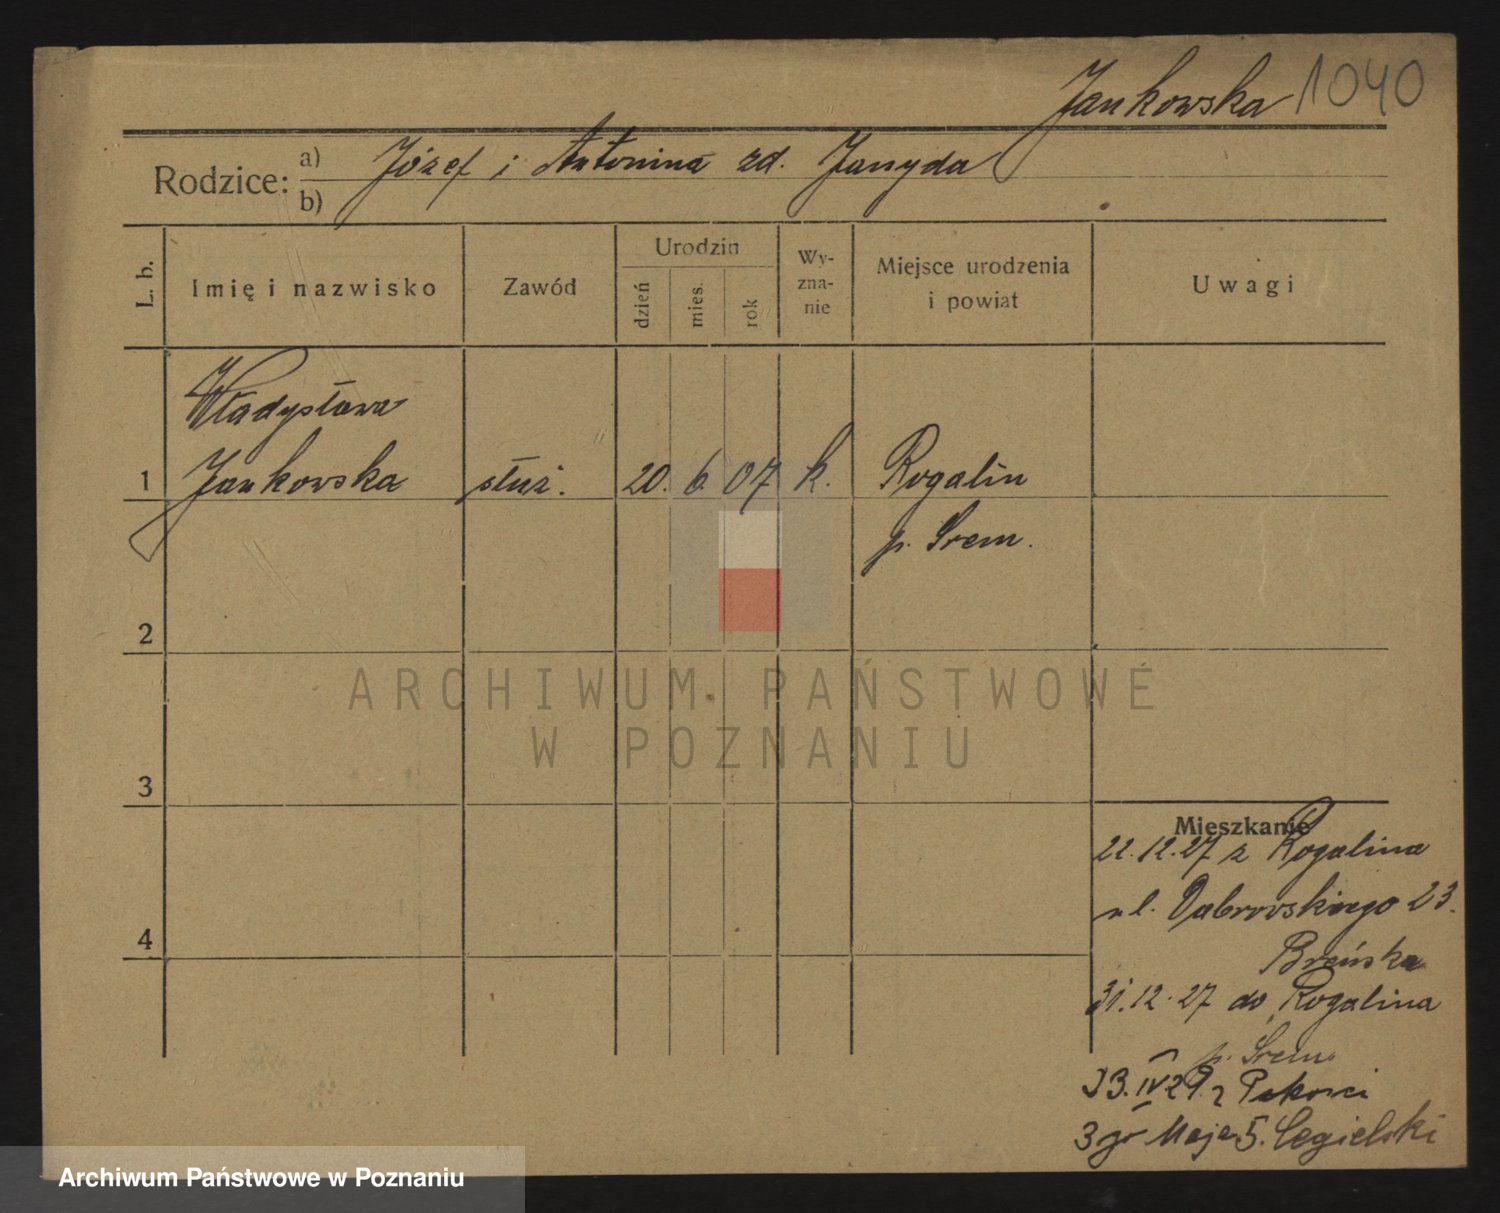 Jankowska 1040
Rodzice: a) Józef i Antonina zd. Janyda
b)
L. b.
Imię i nazwisko
Zawód
Urodzin
dzień
mies.
rok
Wy-
zna-
nie
Miejsce urodzenia
i powiat
Uwagi
Władysława
1 Jankowska służ. 20. 6. 07 k. Rogalin
p. Śrem.
2
ARCHIWUM PAŃSTWOWE
W POZNANIU
3
Mieszkanie
22.12.27 z Rogalina
ul. Dąbrowskiego 23.
31.12.27 do Rogalina
p. Śrem
23.IV.29 z
4
3go Maja 5. Cegielski
Archiwum Państwowe w Poznaniu